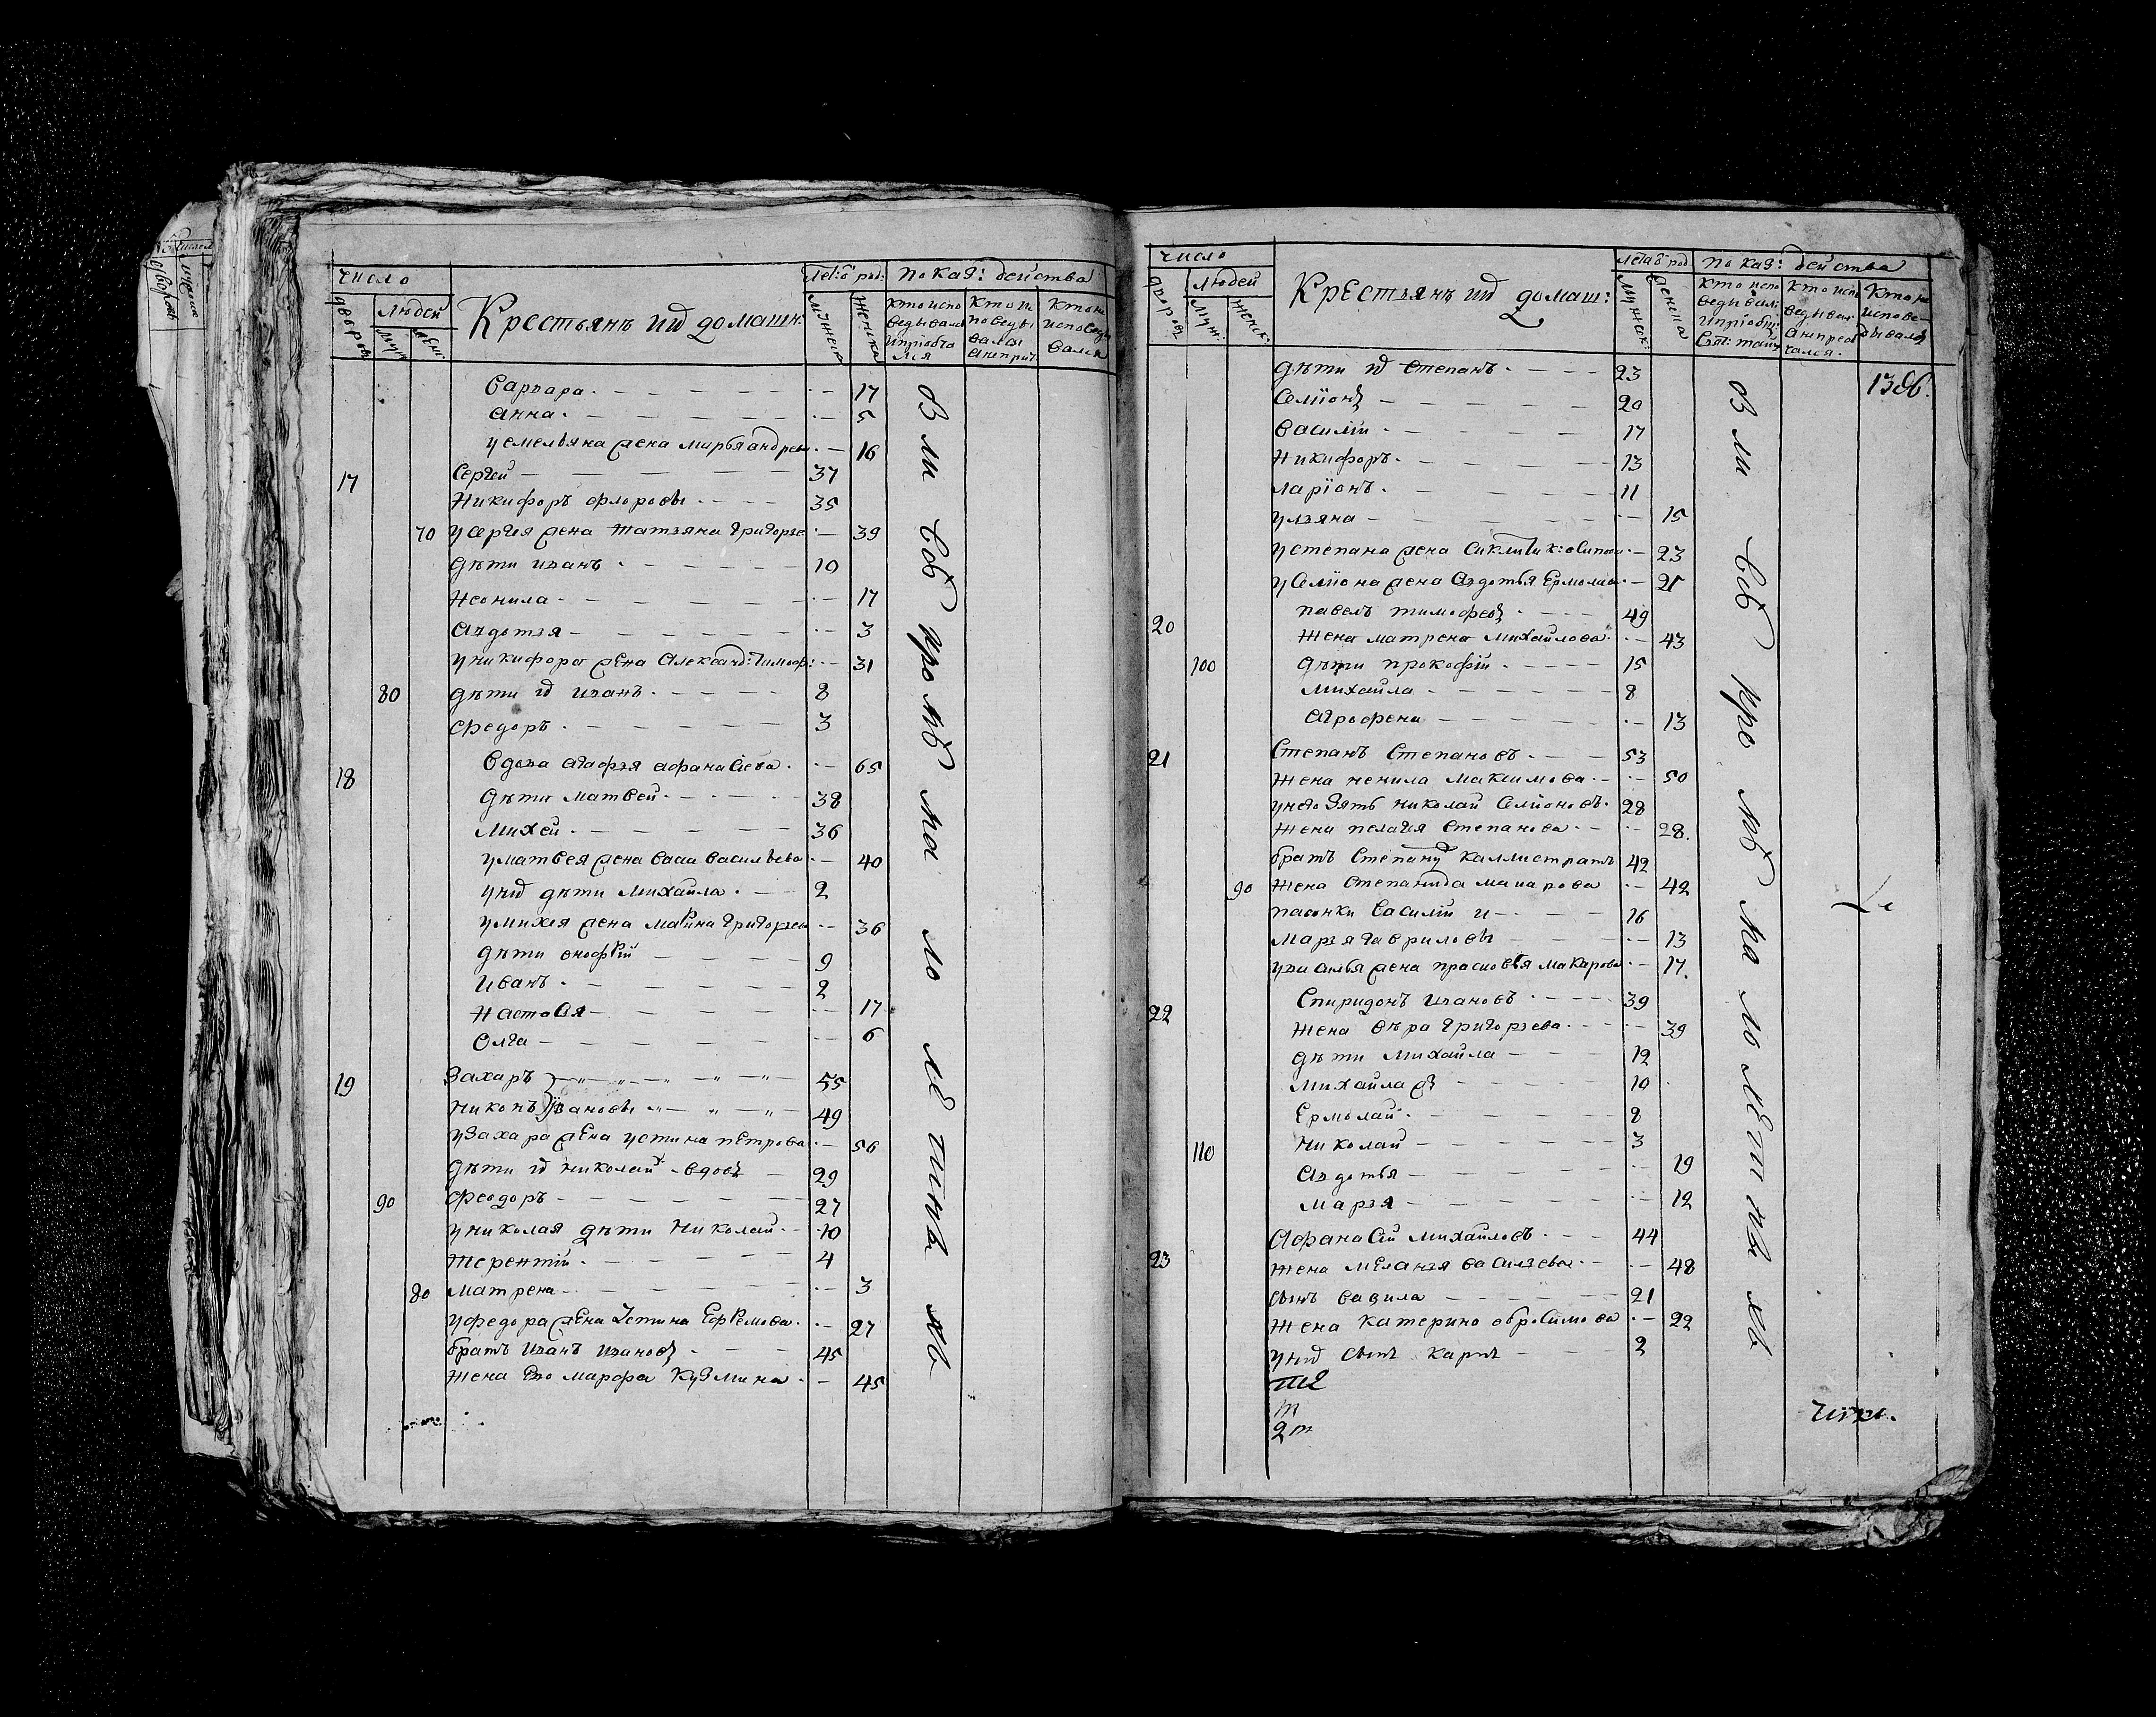 число
дворов
людей
муж
жен
Крестьянъ ихъ домашн:
лет: ѿ рож:
мужеска
женска
показ: действа
кто испо
ведывалс
и приобща
лся
кто и
поведы
вался
а не прич
кто не
исповеды
вался
Варвара 17
Анна 5
у емельяна жена марья андреев 16
17 Сергей 37
Никифоръ флоровы 35
70 у сергея жена татьяна григорье 39
дѣти иванъ 10
Неонила 17
Авдотья 3
у никифора жена Александ: тимоф: 31
80 дѣти их иванъ 8
Федоръ 3
18 вдова агафья афанасьева 65
дѣти матвей 38
Михей 36
у матвея жена васа васильева 40
у них дѣти михайла 2
у михея жена марина григорьев 36
дѣти онофрій 9
Иванъ 2
Настасья 17
Олга 6
19 Захаръ 55
Никонъ ивановы 49
у захара жена устина петрова 56
дѣти их николай вдовъ 29
90 феодоръ 27
у николая дѣти николай 10
терентій 4
80 матрена 3
у федора жена устина Ефремова 27
братъ иванъ ивановъ 45
жена Его марфа кузмина 45
в ли соб роль на ло ле тнѣ хъ
число
дворов
людей
муж:
женск:
Крестьянъ ихъ домаш:
лета ѿ рож
мужеск:
женска
показ: действа
кто испо
ведывали
и приобщ:
свт: тайн
кто испо
ведывал
а не приоб
щался.
кто не
испове-
дывался
1386.
дѣти их Степанъ 23
Семіонъ 20
василій 17
Никифоръ 13
ларіонъ 11
ульяна 15
у степана жена 23
у Семіона жена Авдотья Ермолаев 21
20 павелъ тимофеевъ 49
жена матрена михайлова 43
100 дѣти прокофій 15
михайла 8
Агрофена 13
21 Степанъ Степановъ 53
жена ненила максимова 50
у него зять николай Семіоновъ 28
жена пелагея степанова 28.
братъ Степану каллистратъ 42
90 жена степанида макарова 42
пасынки василій и 16
марья гавриловы 13
у василья жена прасковья макарова 17.
22 Спиридонъ ивановъ 39
жена вѣра григорьева 39
дѣти михайла 12
михайла 10
Ермолай 8
110 николай 3
авдотья 19
марья 12
23 Афанасій михайловъ 44
жена меланья васильева 48
сынъ вавила 21
жена катерина 22
у них сынъ карпъ 2
в ли соб роль на ло лет нѣ хъ